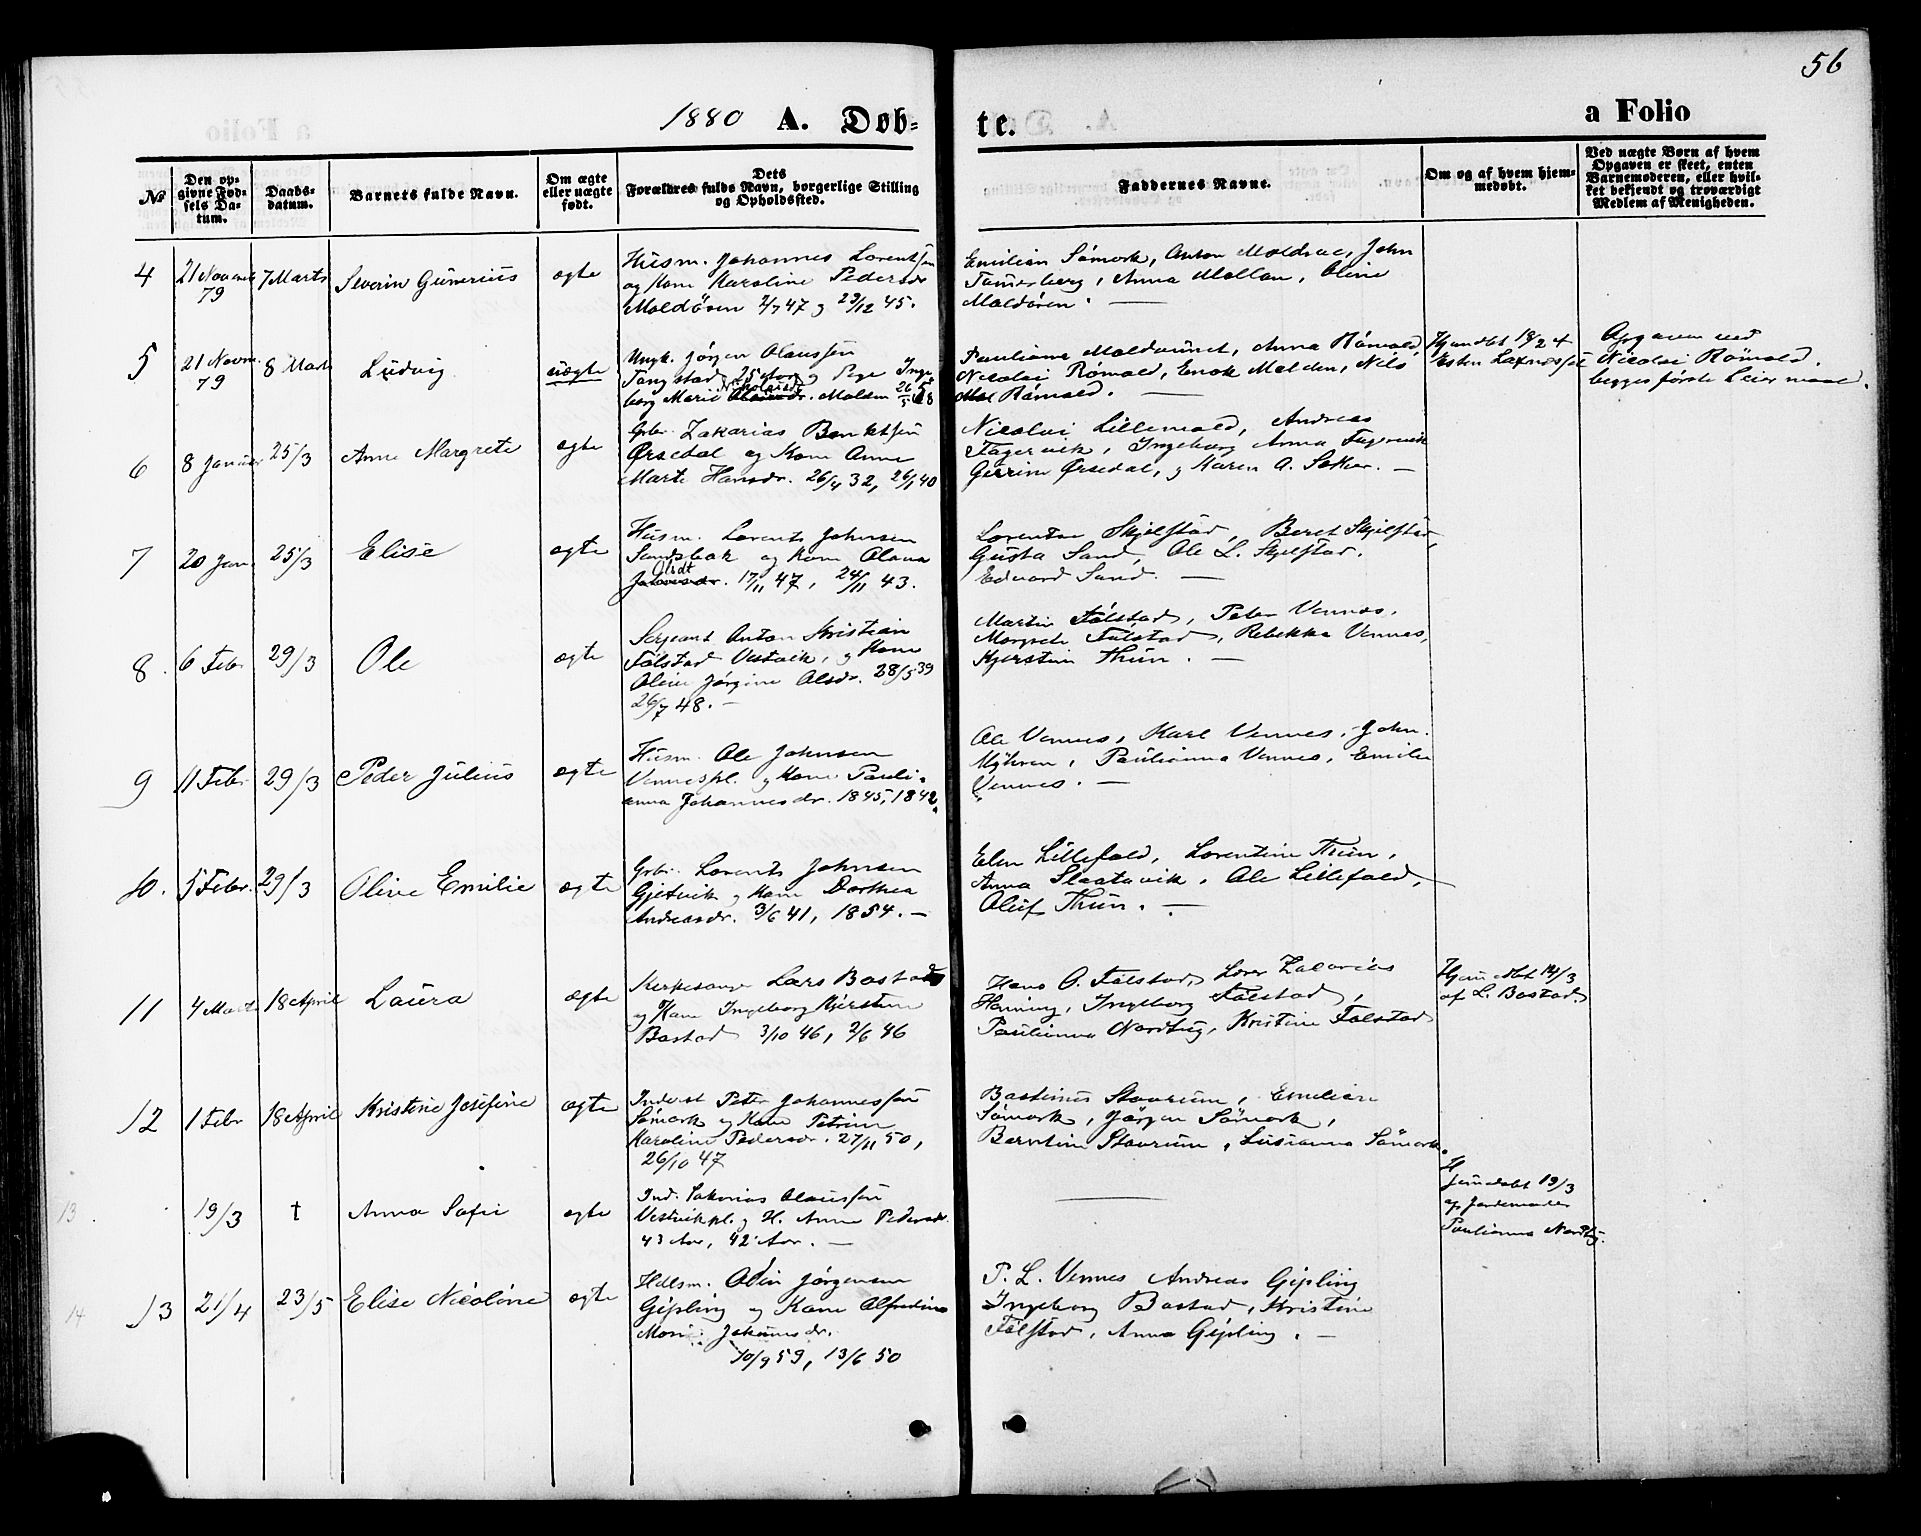 56
1880 A. Døb- te. a Folio
No
Den op-
givne Fød-
sels Da-
tum.
Daabs-
datum.
Barnets fulde Navn.
Om ægte
eller uægte
født.
Dets
Forældres fulde Navn, borgerlige Stilling
og Opholdssted.
Faddernes Navne.
Om og af hvem hjem-
medøbt.
Ved uægte Børn af hvem
Opgaven er skeet, enten
Barnemoderen, eller hvil-
ket bekjendt og troværdigt
Medlem af Menigheden.
4
21 Novemb
79
7 Marts
Severin Gunerius
ægte
Husm. Johannes Lorentsen
og Kone Karoline Pedersdr
Moldören 2/7 47 og 29/12 45.
Emilian Sömork, Anton John
Anna Mollan, Oline
Moldören. —
5
21 Novm.
79
8 Mart
Ludvig
uægte
Ungk. Jørgen Olaussen
Tangstad 25 Aar og Pige Inge
borg Marie Molden 26/5 58
Pauliana Moldvunet, Anna Römold,
Nicolai Römold, Enok Molden, Nils
Römold. —
Hjemdøbt 18/2
Opgaven ved
Nicolai Römold.
begges første Leiermaal.
6
8 Januar
25/3
Anne Margrete
ægte
Grbr. Zakarias Bentsen
Ørsedal og Kone Anne
Marte Hansdr. 26/4 32, 26/1 40
Nicolai Lillemold, Andreas
Fagervik, Ingeborg Anna Fagervik
Ørsedal, og Maren A. —
7
20 Jan.
25/3
Elise
ægte
Husm. Lorents Johnsen
Sandsbak og Kone Olava
Olsdt
17/11 47, 24/11 43.
Skjelstad, Beret Skjelstad,
Gusta Sand, Ole L. Skjelstad.
Edvard Sand. —
8.
6 Febr
29/3
Ole
ægte
Sergeant Anton Kristian
Fölstad Vestvik, og Kone
Oline Jørgine Olsdr. 28/5 39
26/7 48. —
Martin Fölstad, Peter Vennes.
Margrete Fölstad, Rebekka Vennes,
Kjerstin Thun. —
9
11 Febr
29/3
Peder Julius
ægte
Husm. Ole Johnsen
Vennespl. og Kone Pauli-
anna Johannesdr. 1845, 1842.
Ole Vennes, Karl Vennes, John.
Myhren, Paulianna Vennes, Emilie
Vennes. —
10.
5 Febr.
29/3
Oline Emilie
ægte
Grbr. Lorents Johnsen
Gjetvik og Kone Dorthea
Andreasdr. 3/6 41, 1854. —
Elen Lillefald, Lorentine Thun,
Anna Slaatavik, Ole Lillefald,
Oluf Thun. —
11
4 Marts
18 April
Laura
ægte
Kirkesanger Lars Bastad
og Kone Ingeborg Kjersten
Bastad 3/10 46, 2/6 46
Hans O. Fölstad,
Ingeborg Fölstad,
Paulianna Nordbug, Kristine Fölstad
Hjemdøbt 14/3
af L. Bastad
12
1 Febr
18 April
Kristine Josefine
ægte
Inderst Peter Johannessen
Sömork og Kone Petrine
Karoline Pedersdr. 27/11 50,
26/10 47
Bastinus Stavrum, Emilian
Sömork, Jørgen Sömork,
Berntine Stavrum, Lusianna Sömork.
13
19/3
†
Anna Sofie
ægte
Ind. Sakarias Olaussen
Vestvikpl. og H. Anne Pedersdr.
43 Aar, 42 Aar. —
Hjemdøbt 19/3
af Jordemoder
Paulianna Nordbg.
14
13
21/4
23/5
Elise Nicoline
ægte
Hdlsm. Odin Jørgensen
Gipling og Kone Alfredine
10/9 59, 13/6 50
P. L. Vennes Andreas Gipling
Ingeborg Bastad, Kristine
Fölstad, Anna Gipling. —